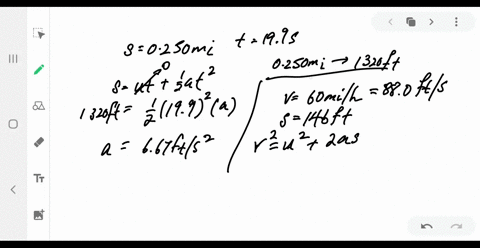 s = 0.250mi   t = 19.9s
s = ut + ½at²
0
1320ft = ½(19.9)²(a)
a = 6.67ft/s²
0.250mi → 1320ft
v = 60mi/h = 88.0 ft/s
s = 146ft
v² = u² + 2as
Tт